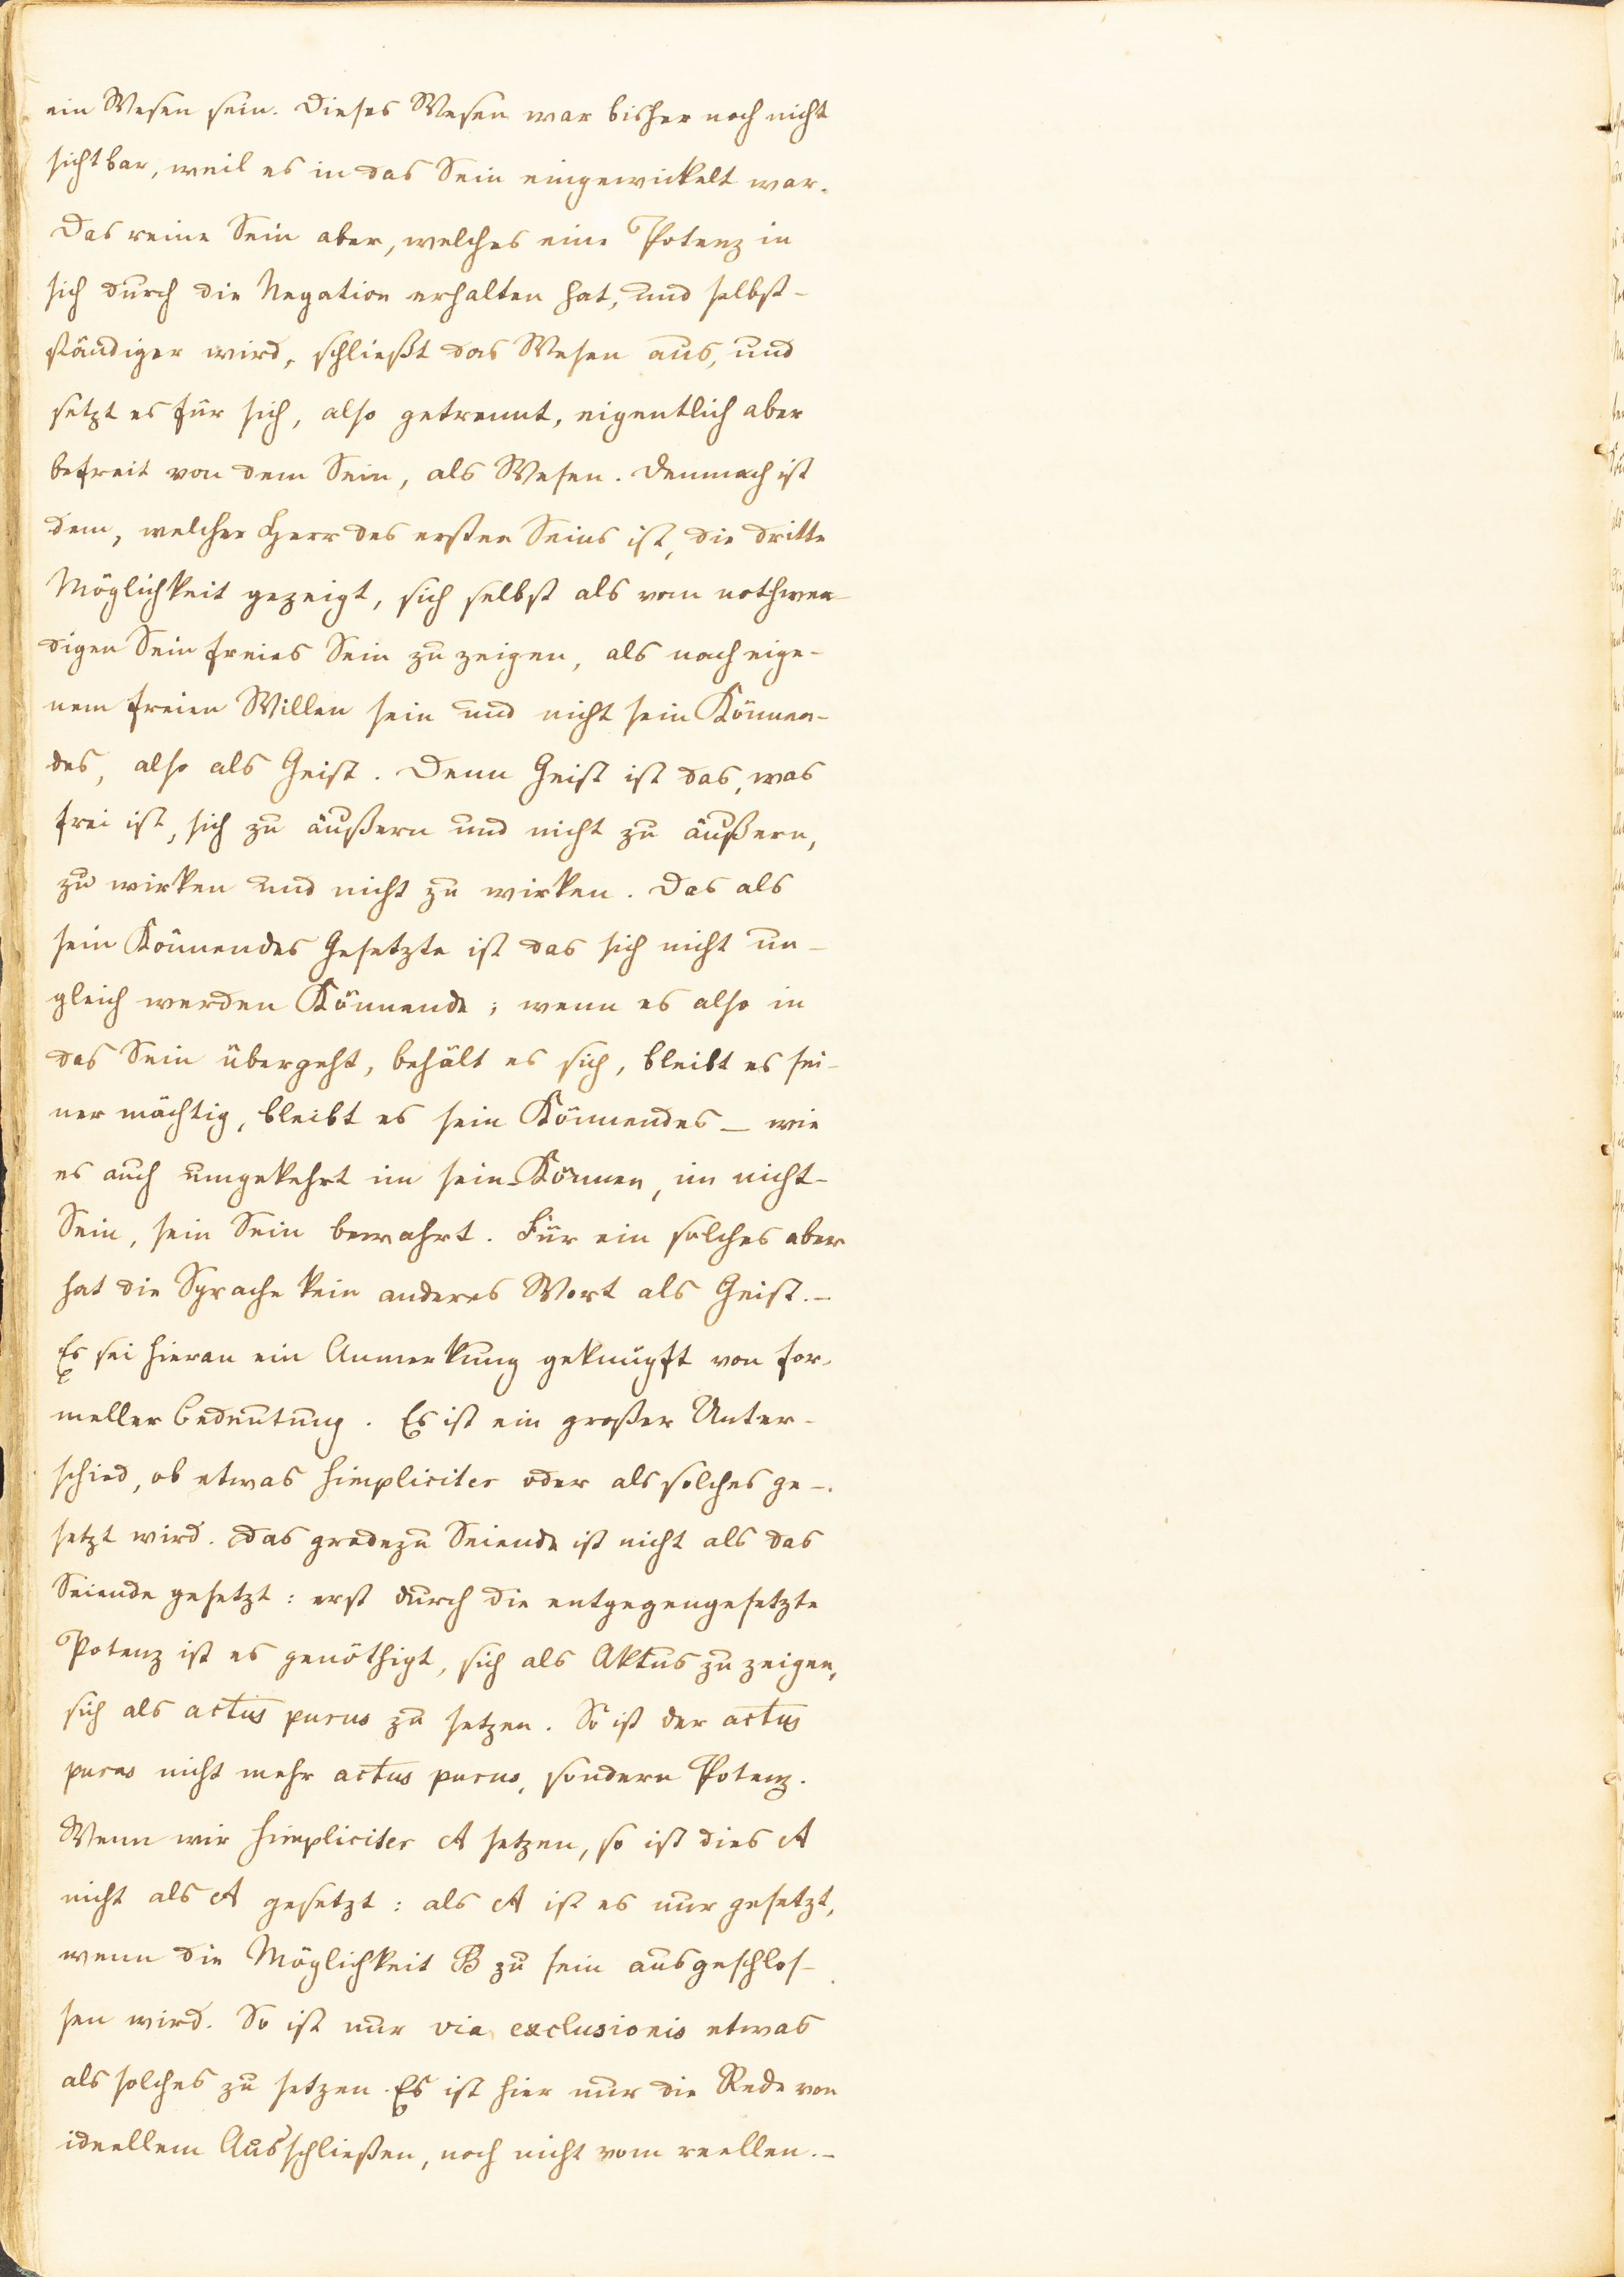 ein Wesen sein. Dieses Wesen war bisher noch nicht
sichtbar, weil es in das Sein eingewickelt war.
Das reine Sein aber, welches eine Potenz in
sich durch die Negation erhalten hat, und selbst-
ständiger wird, schließt das Wesen aus, und
setzt es für sich, also getrennt, eigentlich aber
befreit von dem Sein, als Wesen. Demnach ist
dem, welcher Herr des ersten Seins ist, die dritte
Möglichkeit gezeigt, sich selbst als vom nothwen-
digen Sein freies Sein zu zeigen, als nach eige-
nem freien Willen sein und nicht sein Können-
des, also als Geist. Denn Geist ist das, was
frei ist, sich zu äußern und nicht zu äußern,
zu wirken und nicht zu wirken. Das als
sein Könnendes Gesetzte ist das sich nicht un-
gleich werden Könnende; wenn es also in
das Sein übergeht, behält es sich, bleibt es sei-
ner mächtig, bleibt es sein Könnendes – wie
es auch umgekehrt im sein-Können, im nicht-
Sein, sein Sein bewahrt. Für ein solches aber
hat die Sprache kein anderes Wort als Geist. –
Es sei hieran ein Anmerkung geknüpft von for-
meller Bedeutung. Es ist ein großer Unter-
schied, ob etwas simpliciter oder als solches ge-
setzt wird. Das gradezu Seiende ist nicht als das
Seiende gesetzt: erst durch die entgegengesetzte
Potenz ist es genöthigt, sich als Aktus zu zeigen,
sich als actus purus zu setzen. So ist der actus
purus nicht mehr actus purus, sondern Potenz.
Wenn wir simpliciter A setzen, so ist dies A
nicht als A gesetzt: als A ist es nur gesetzt,
wenn die Möglichkeit B zu sein ausgeschlos-
sen wird. So ist nur via exclusionis etwas
als solches zu setzen. Es ist hier nur die Rede von
ideellem Ausschließen, noch nicht vom reellen. –